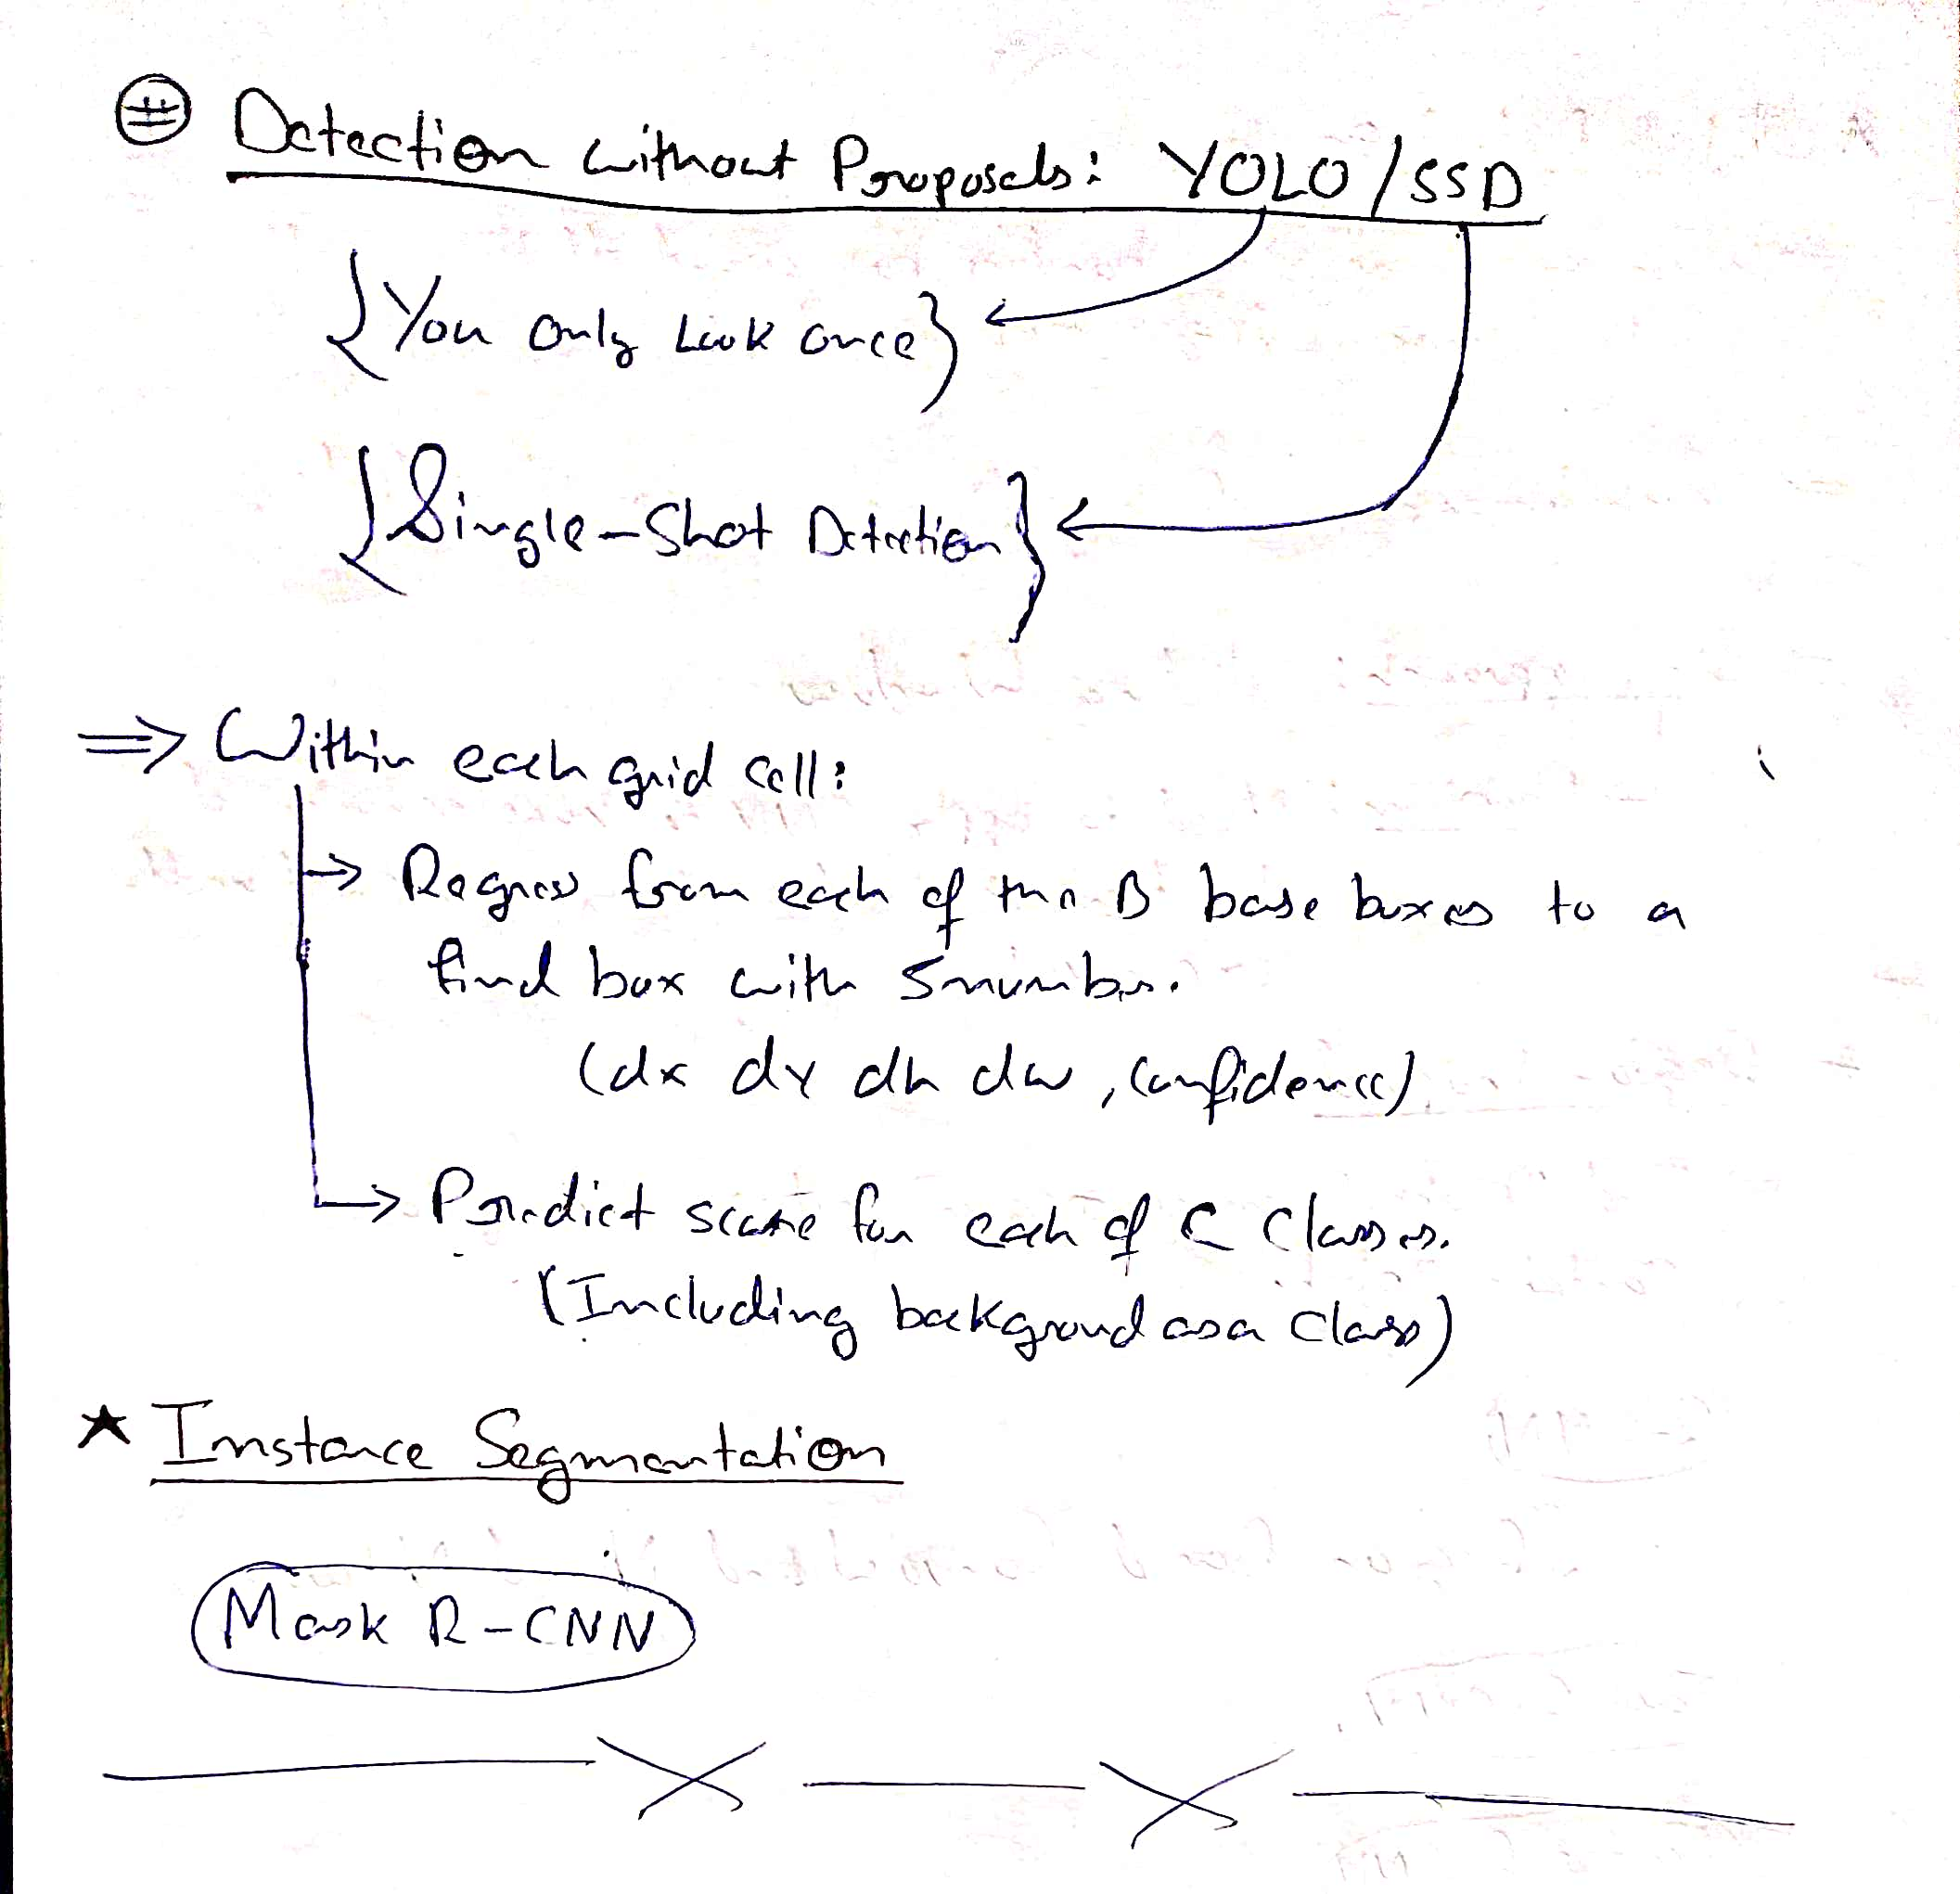 # Detection without Proposals: YOLO/SSD
{You only Look once}
{Single-Shot Detection}
⇒ Within each grid cell:
→ Regress from each of the B base boxes to a
final box with 5 numbers.
(dx dy dh dw, confidence)
→ Predict score for each of C classes.
(Including background as a class)
★ Instance Segmentation
Mask R-CNN